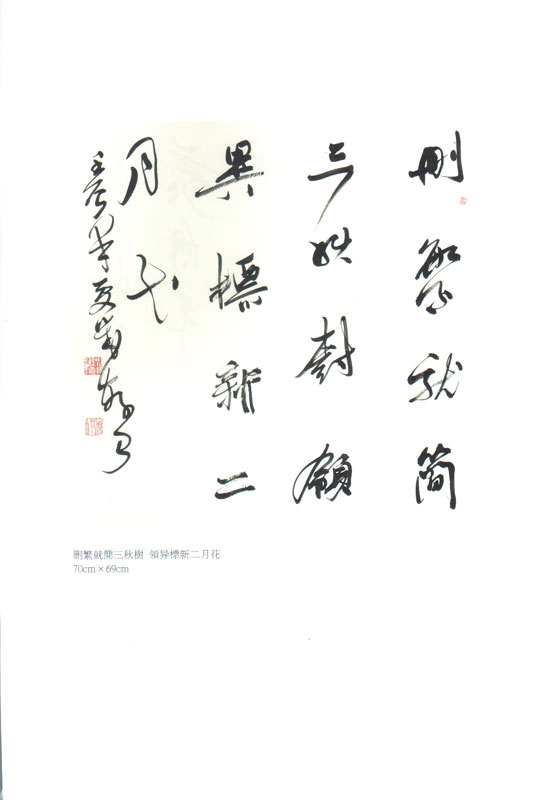 刪繁就簡
三秋樹領
異標新二
月花
刪繁就簡三秋樹 領异標新二月花
70cm×69cm